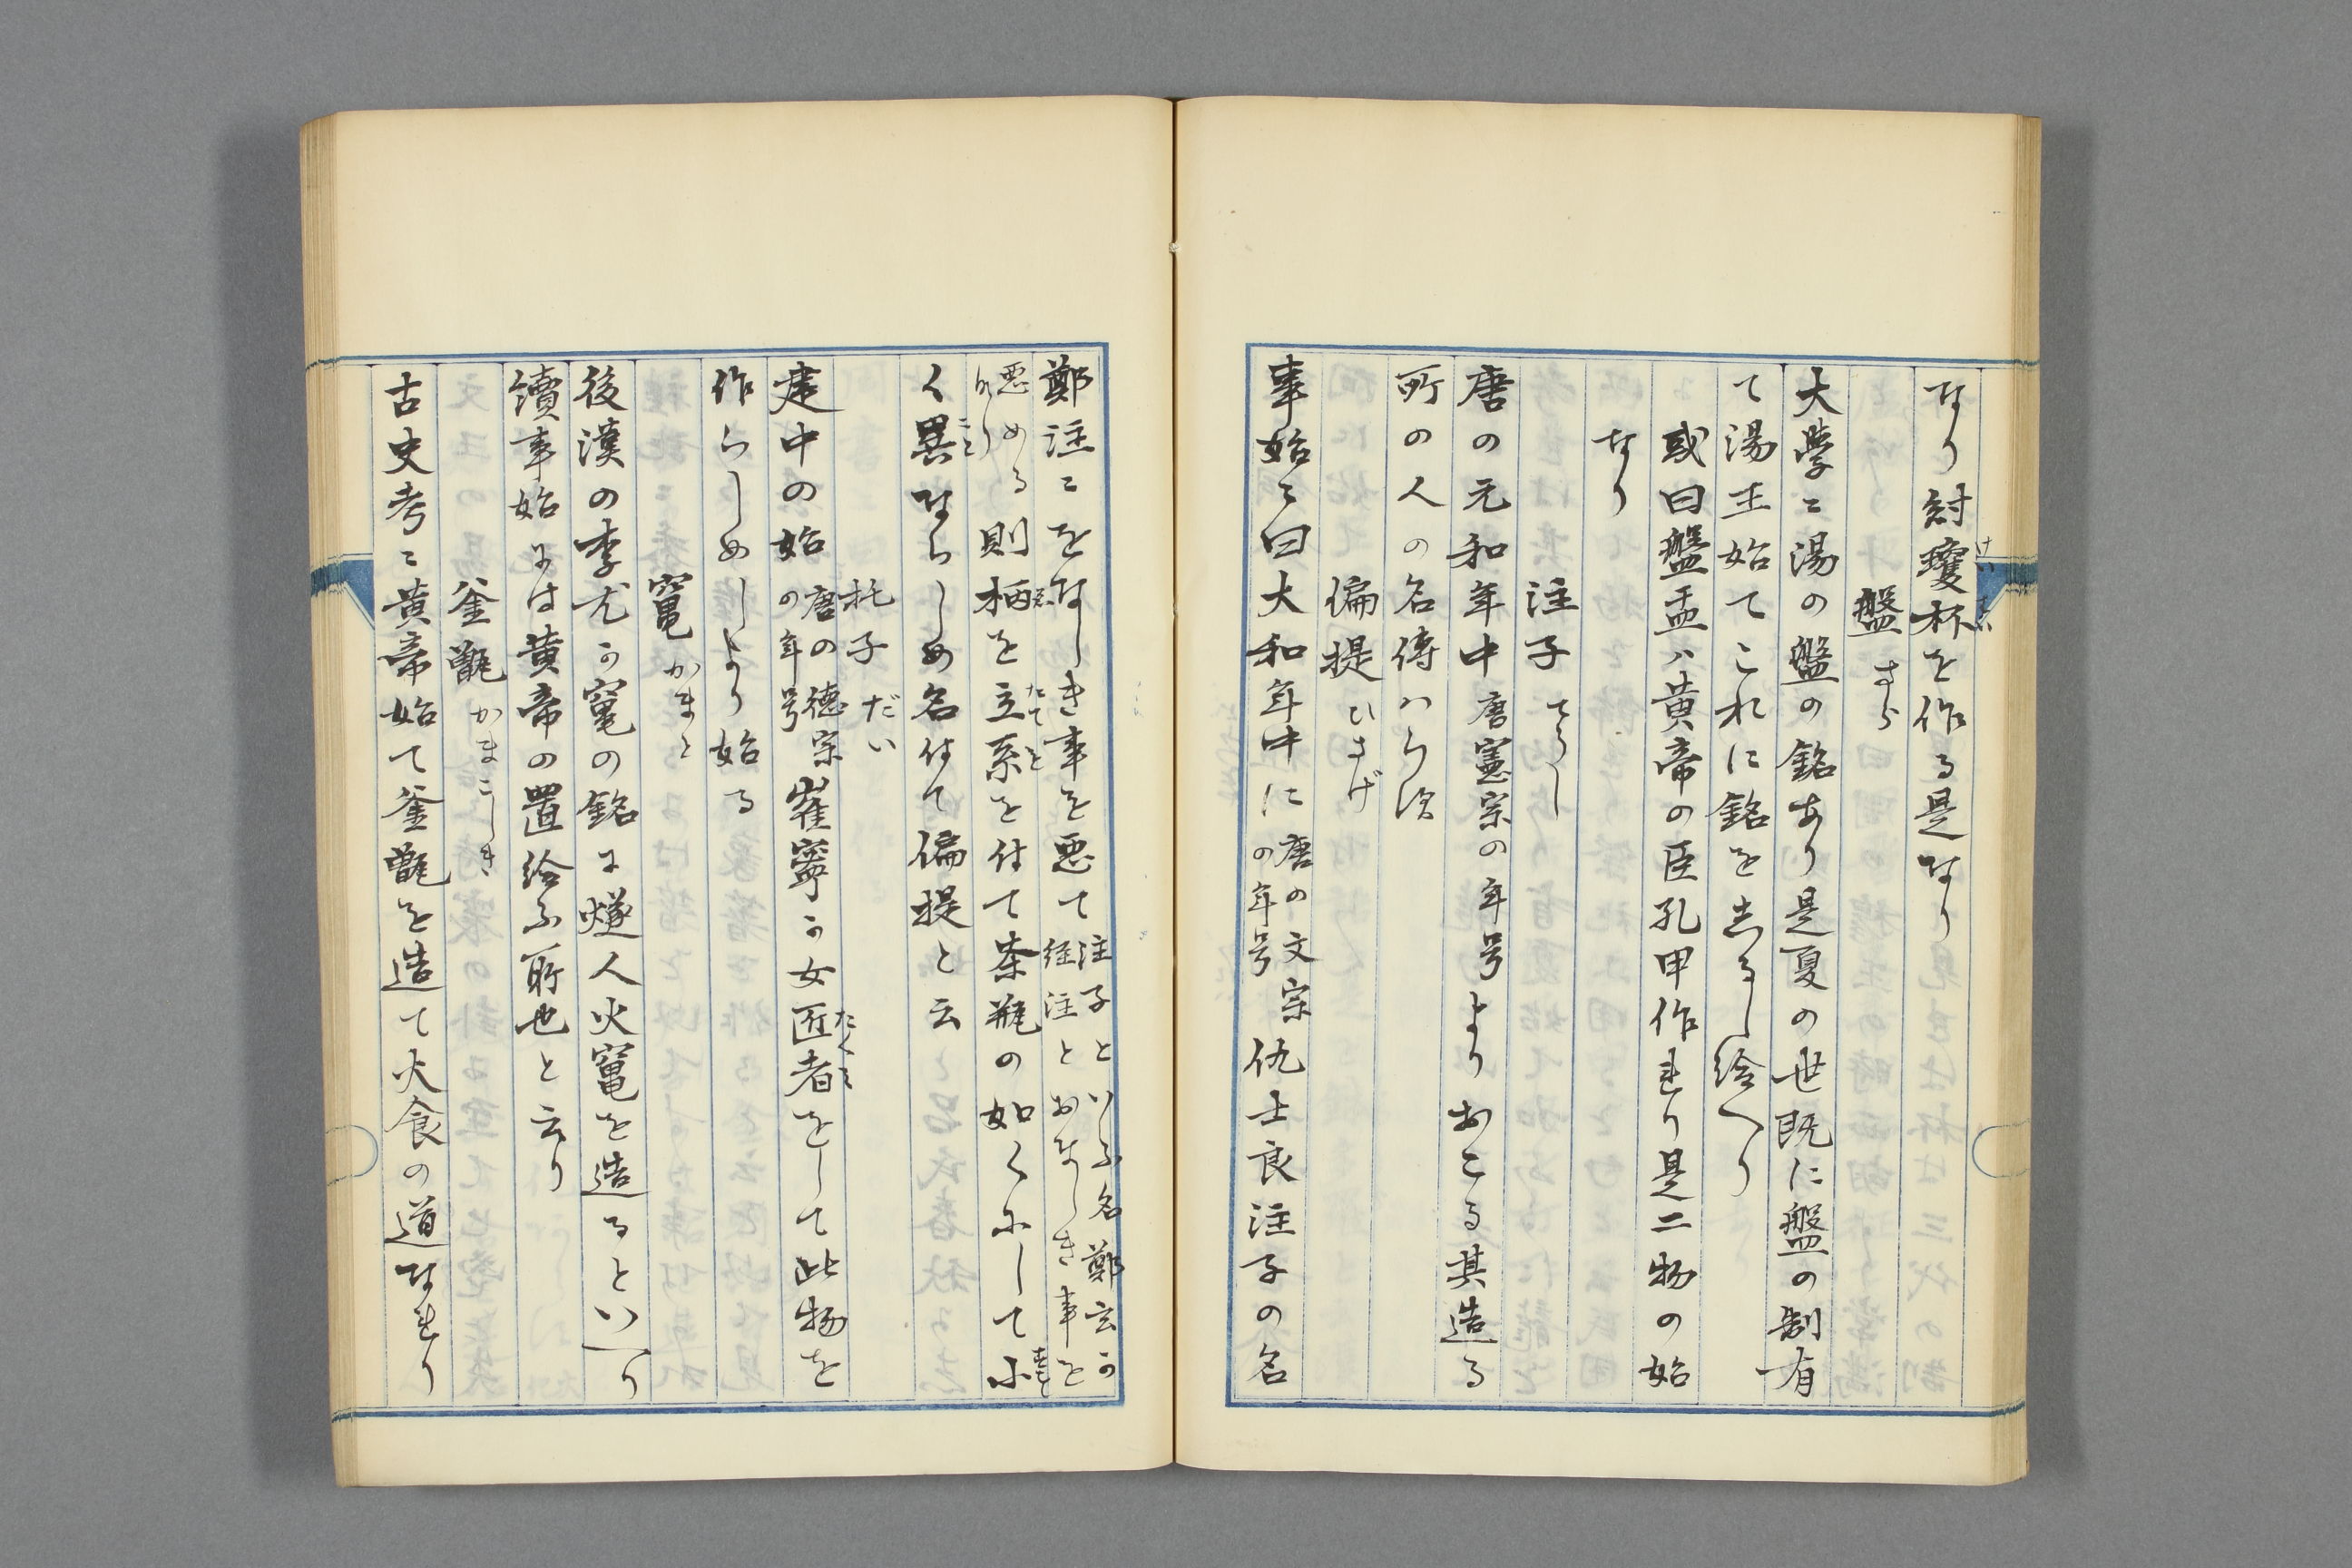 なり紂瓊杯を作る是なり
盤 さら
大学ニ湯の盤の銘あり是夏の世既に盤の制有
て湯王始てこれに銘を志るし給へり
或曰盤盂ハ黄帝の臣孔甲作れり是二物の始
なり
注子 てうし
唐の元和年中唐憲宗の年号よりおこる其造る
所の人の名傳ハらす
偏提 ひさげ
事始ニ曰大和年中に唐の文宗の年号仇士良注子の名
鄭注ニをなしき事を悪て注子といふ名鄭玄か経注とおなしき事を
悪める則柄を立系を付て茶瓶の如くにして小
く異ならしめ名付て偏提と云
托子 だい
建中の始唐の徳宗の年号崔寧か女匠者をして此物を
作らしめしより始る
竃 かまと
後漢の李尤か竃の銘に燧人火竃を造るといへり
續事始には黄帝の置給ふ所也と云り
釜甑 かまこしき
古史考ニ黄帝始て釜甑を造て火食の道なれり